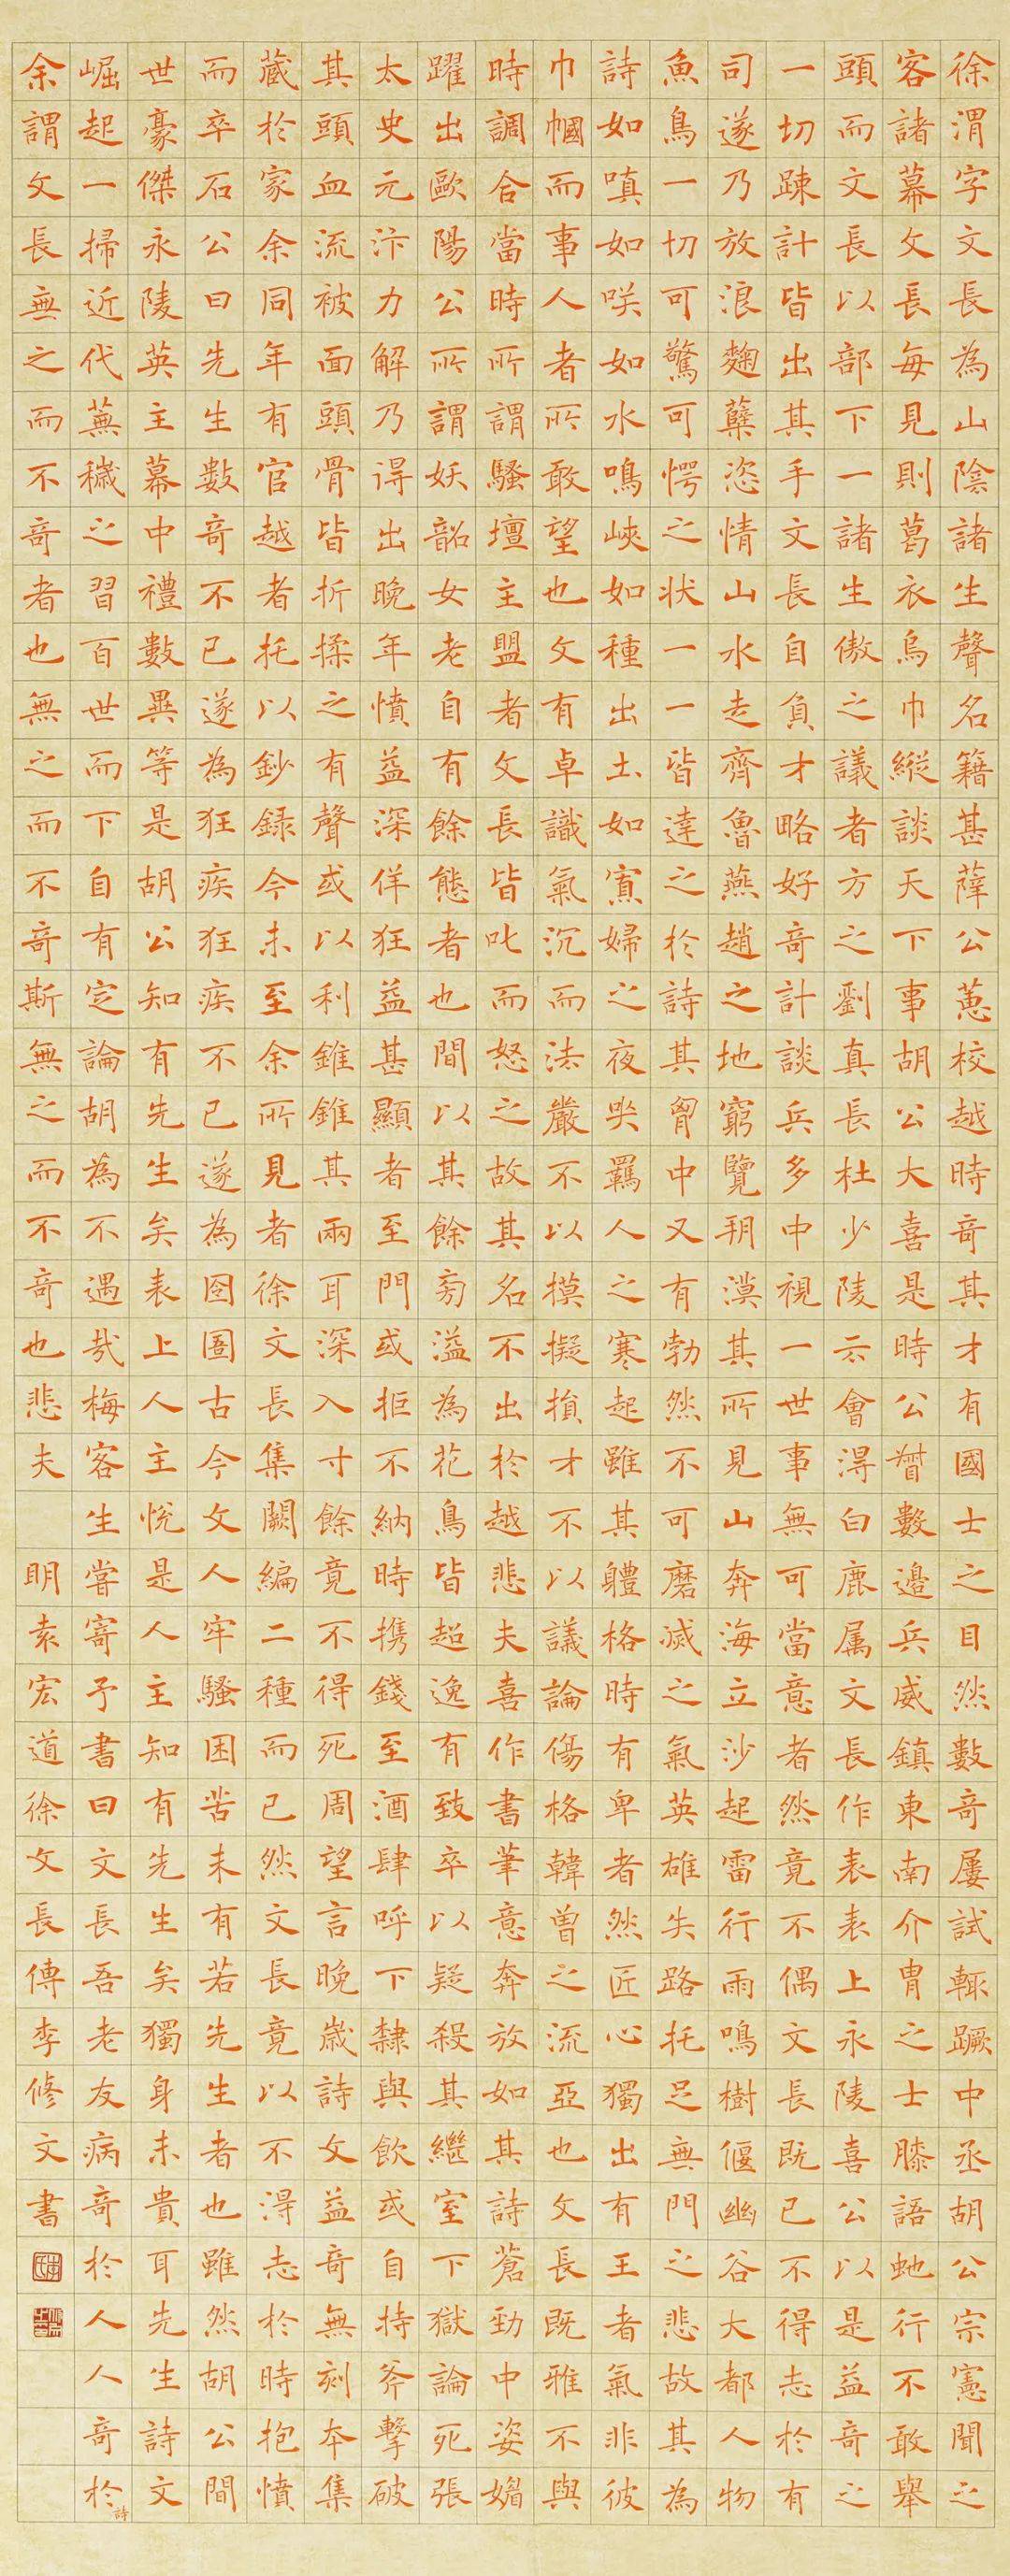 徐渭字文長為山陰諸生聲名籍甚薛公蕙校越時奇其才有國士之目然數奇屢試輒蹶中丞胡公宗憲聞之
客諸幕文長每見則葛衣烏巾縱談天下事胡公大喜是時公督數邊兵威鎮東南介胄之士膝語虵行不敢舉
頭而文長以部下一諸生傲之議者方之劉真長杜少陵云會得白鹿属文長作表表上永陵喜公以是益奇之
一切疎計皆出其手文長自負才略好奇計談兵多中視一世事無可當意者然竟不偶文長既已不得志於有
司遂乃放浪麴蘖恣情山水走齊魯燕趙之地窮覽朔漠其所見山奔海立沙起雷行雨鳴樹偃幽谷大都人物
魚鳥一切可驚可愕之状一一皆達之於詩其胷中又有勃然不可磨滅之氣英雄失路托足無門之悲故其為
詩如嗔如咲如水鳴峽如種出土如寡婦之夜哭羈人之寒起雖其軆格時有卑者然匠心獨出有王者氣非彼
巾幗而事人者所敢望也文有卓識氣沉而法嚴不以摸擬損才不以議論傷格韓曾之流亞也文長既雅不與
時調合當時所謂騷壇主盟者文長皆叱而怒之故其名不出於越悲夫喜作書筆意奔放如其詩蒼勁中姿媚
躍出歐陽公所謂妖韶女老自有餘態者也間以其餘旁溢為花鳥皆超逸有致卒以疑殺其繼室下獄論死張
太史元汴力解乃得出晚年憤益深佯狂益甚顯者至門或拒不納時携錢至酒肆呼下隸與飲或自持斧擊破
其頭血流被面頭骨皆折揉之有聲或以利錐錐其兩耳深入寸餘竟不得死周望言晚歲詩文益奇無刻本集
藏於家余同年有官越者托以鈔録今未至余所見者徐文長集闕編二種而已然文長竟以不得志於時抱憤
而卒石公曰先生數奇不已遂為狂疾狂疾不已遂為囹圄古今文人牢騷困苦未有若先生者也雖然胡公間
世豪傑永陵英主幕中禮數異等是胡公知有先生矣表上人主悅是人主知有先生矣獨身未貴耳先生詩文
崛起一掃近代蕪穢之習百世而下自有定論胡為不遇哉梅客生嘗寄予書曰文長吾老友病奇於人人奇於詩
余謂文長無之而不奇者也無之而不奇斯無之而不奇也悲夫 明袁宏道徐文長傳李修文書